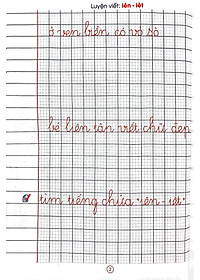 Luyện viết: iên - iêt
ở ven biển có vỏ sò
bé liên rèn viết chữ đẹp
tìm tiếng chứa "iên - iêt"
2